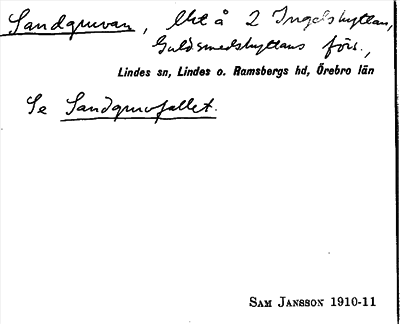 Sandgruvan, Utä å 2 Ingelshyttan,
Guldsmedshyttans förs.,
Lindes sn, Lindes o. Ramsbergs hd, Örebro län
Se Sandgruvfallet.
Sam Jansson 1910-11